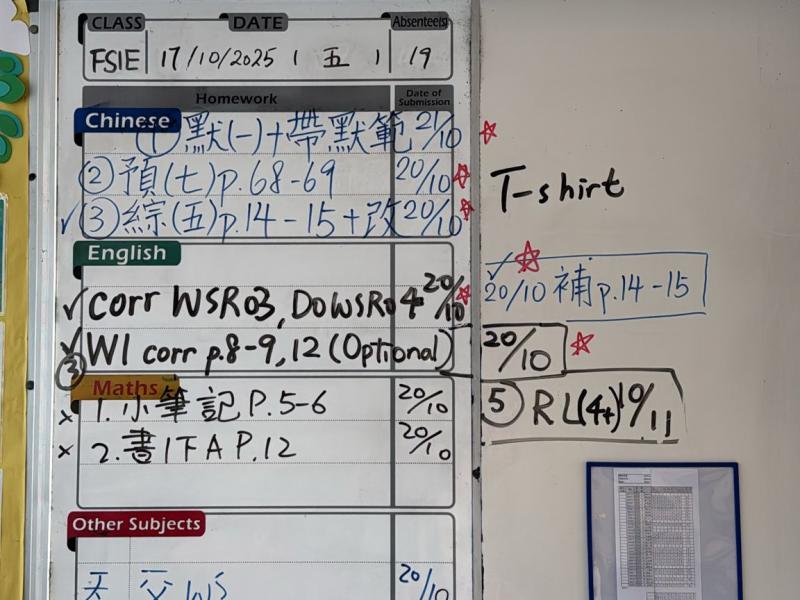 CLASS DATE Absentee(s)
FSIE 17/10/2025 ( 五 ) 19
Homework Date of Submission
Chinese
① 默(一)+帶默範 21/10
② 預(七)p.68-69 20/10
T-shirt
✓③綜(五)p.14-15+改 20/10
English
✓ 20/10 補p.14-15
✓ corr WSR03, Do WSR04 20/10
✓ WI corr p.8-9, 12 (Optional) 20/10
③
Maths
⑤ RL(4+) 10/11
× 1. 小筆記 P.5-6 20/10
× 2. 書1FA P.12 20/10
Other Subjects
交 WS 20/10